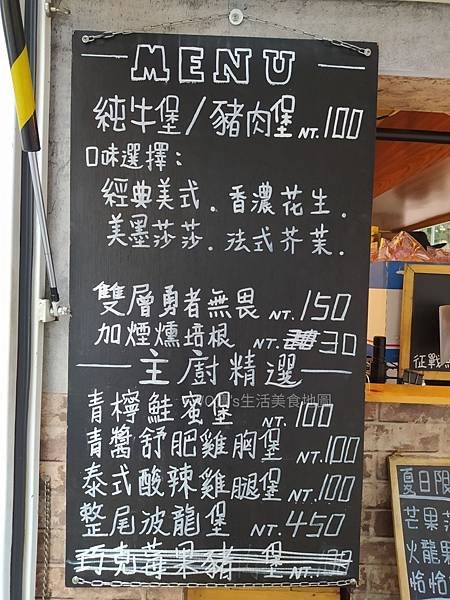 MENU
純牛堡/豬肉堡 NT.100
口味選擇:
經典美式.香濃花生.
美墨莎莎.法式芥茉.
雙層勇者無畏 NT.150
加煙燻培根 NT. 30
主廚精選
青檸鮭蜜堡 NT.100
青醬舒肥雞胸堡 NT.100
泰式酸辣雞腿堡 NT.100
整尾波龍堡 NT.450
巧克莓果豬 堡 NT.
生活美食地圖
征戰
夏日限
芒果
火龍果
恰恰